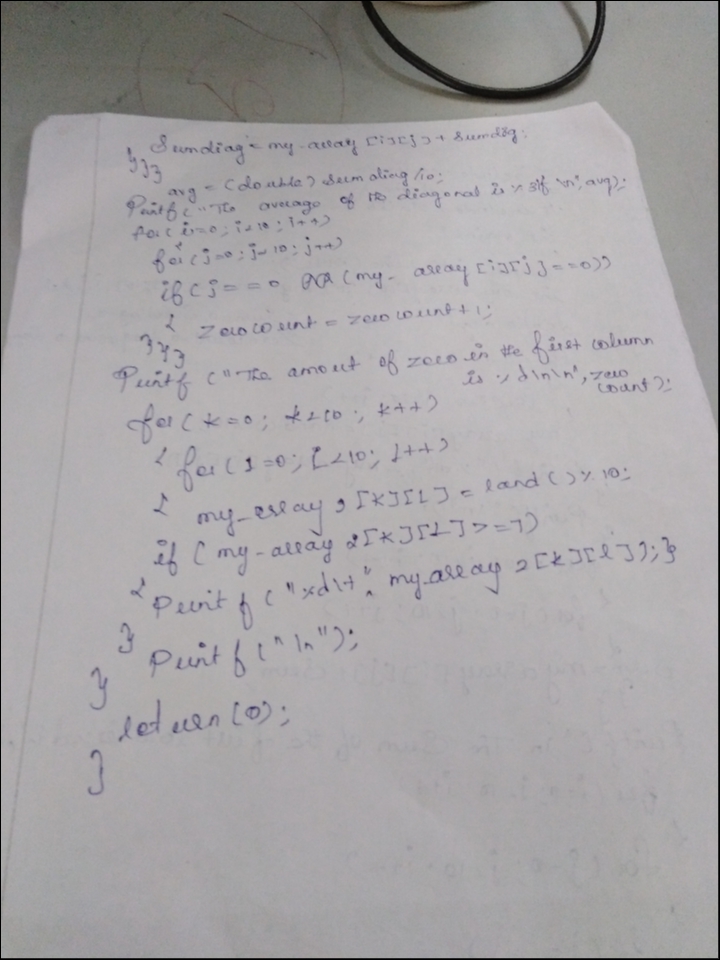 Sumdiag = my_array [i][j] + sumdig;
}}}
avg = (double) sumdiag/10;
Printf ("The average of the diagonal is %.3lf \n", avg);
for (i=0; i<10; i++)
{
for (j=0; j<10; j++)
if (j==0 && (my_array [i][j]==0))
{ zerocount = zerocount+1;
}}}
Printf ("The amount of zero in the first column
is %d\n\n", zero
count);
for (k=0; k<10; k++)
{ for (l=0; l<10; l++)
{ my_array 2 [k][L] = rand() % 10;
if (my_array 2[k][L] >= 7)
{ Printf ("%d\t", my_array 2[k][l]); }
} Printf ("\n");
}
return (0);
}